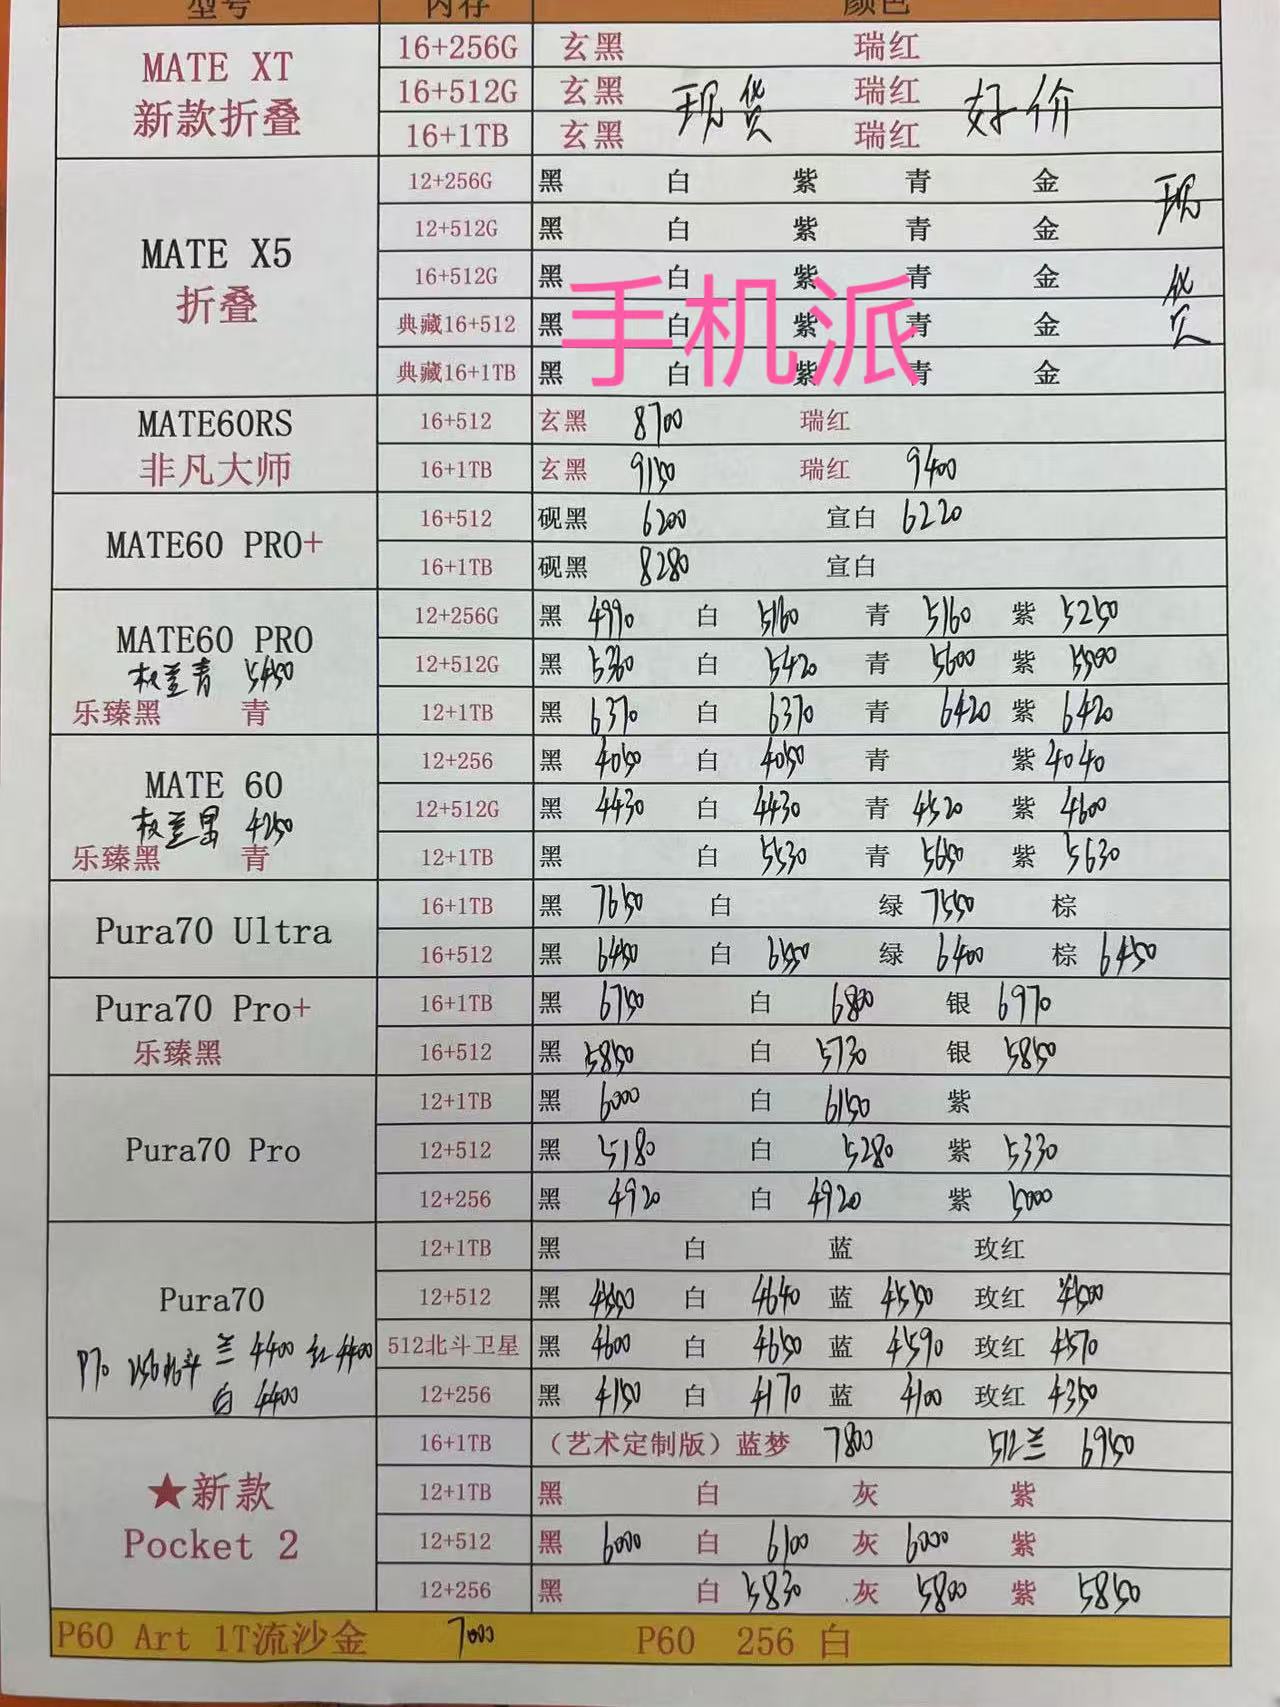 型号 内存 颜色
MATE XT 16+256G 玄黑 瑞红
新款折叠 16+512G 玄黑 现货 瑞红 好价
16+1TB 玄黑 瑞红
12+256G 黑 白 紫 青 金 现货
12+512G 黑 白 紫 青 金
MATE X5 16+512G 黑 白 紫 青 金
折叠 典藏16+512 黑 白 紫 青 金
手机派
典藏16+1TB 黑 白 紫 青 金
MATE60RS 16+512 玄黑 8700 瑞红
非凡大师 16+1TB 玄黑 9150 瑞红 9400
MATE60 PRO+ 16+512 砚黑 6200 宣白 6220
16+1TB 砚黑 8280 宣白
MATE60 PRO 12+256G 黑 4990 白 5160 青 5160 紫 5250
权益青 5450 12+512G 黑 5360 白 5420 青 5600 紫 5500
乐臻黑 青 12+1TB 黑 6370 白 6370 青 6420 紫 6420
MATE 60 12+256 黑 4050 白 4050 青 紫 4040
权益黑 4250 12+512G 黑 4430 白 4430 青 4520 紫 4600
乐臻黑 青 12+1TB 黑 白 5530 青 5650 紫 5630
Pura70 Ultra 16+1TB 黑 7650 白 绿 7550 棕
16+512 黑 6450 白 6550 绿 6400 棕 6450
Pura70 Pro+ 16+1TB 黑 6750 白 6800 银 6970
乐臻黑 16+512 黑 5850 白 5730 银 5850
12+1TB 黑 6000 白 6150 紫
Pura70 Pro 12+512 黑 5180 白 5280 紫 5330
12+256 黑 4920 白 4920 紫 5000
12+1TB 黑 白 蓝 玫红
Pura70 12+512 黑 4550 白 4640 蓝 4550 玫红 4500
P70 256北斗 兰 4400 红 4400 512北斗卫星 黑 4600 白 4650 蓝 4590 玫红 4570
白 4400 12+256 黑 4150 白 4170 蓝 4100 玫红 4350
16+1TB (艺术定制版)蓝梦 7800 512兰 6950
★新款 12+1TB 黑 白 灰 紫
Pocket 2 12+512 黑 6000 白 6100 灰 6000 紫
12+256 黑 白 5830 灰 5800 紫 5850
P60 Art 1T流沙金 7000 P60 256 白